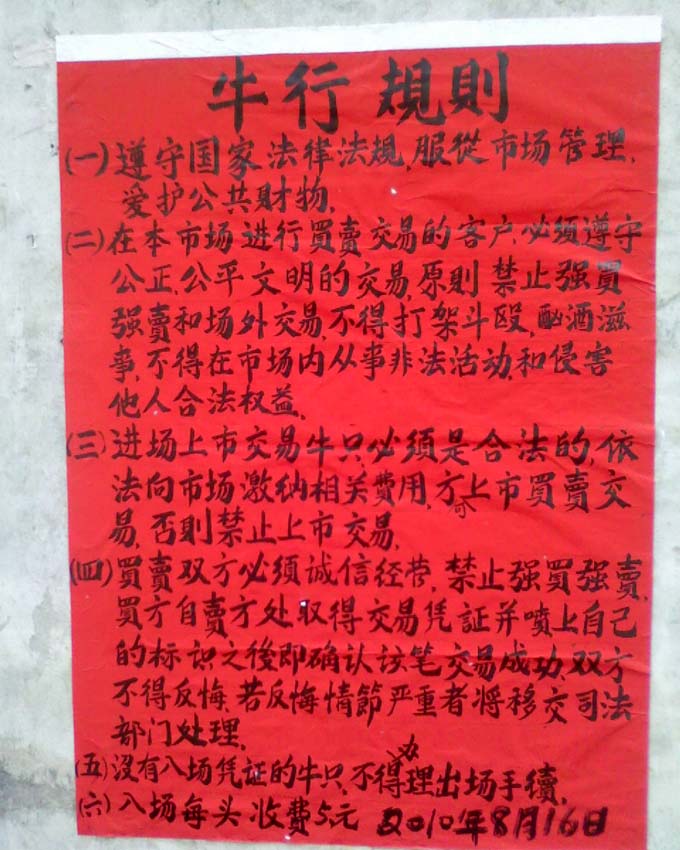 牛行規則
(一)遵守国家法律法規,服從市场管理,
爱护公共財物,
(二)在本市场进行買賣交易的客户,必须遵守
公正、公平文明的交易,原則禁止强買
强賣和场外交易,不得打架斗殴,酗酒滋
事,不得在市场内从事非法活动,和侵害
他人合法权益,
(三)进场上市交易牛只,必须是合法的,依
法向市场激纳相关費用,方可上市買賣交
易,否則禁止上市交易,
(四)買賣双方必须诚信经营,禁止强買强賣,
買方自賣方处取得交易凭証并喷上自己
的标识之後即确认该笔交易成功,双方
不得反悔,若反悔情節严重者将移交司法
部门处理,
(五)沒有入场凭证的牛只,不得办理出场手續,
(六)入场每头收費5元 2010年8月16日